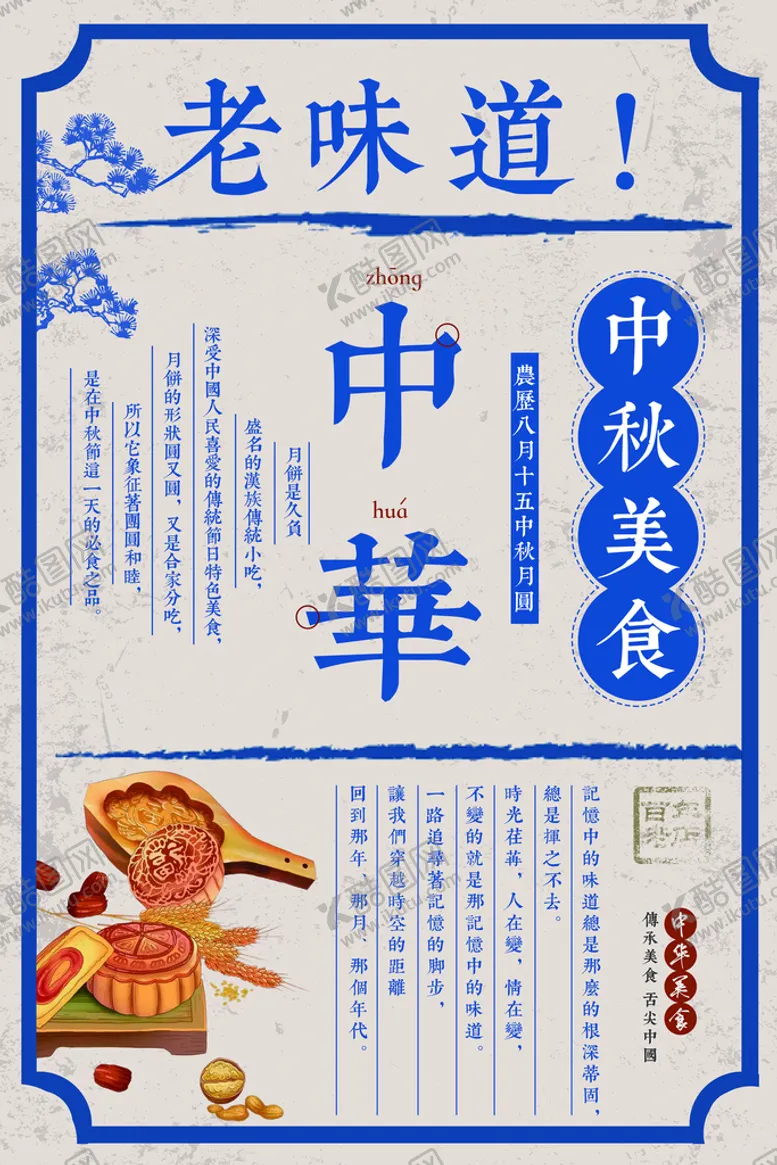 老味道！
中秋美食
農歷八月十五中秋月圓
zhōng
中
huá
華
月餅是久負
盛名的漢族傳統小吃，
深受中國人民喜愛的傳統節日特色美食，
月餅的形狀圓又圓，又是合家分吃，
所以它象征著團圓和睦，
是在中秋節這一天的必食之品。
百年
老店
中华美食
傳承美食 舌尖中國
記憶中的味道總是那麼的根深蒂固，
總是揮之不去。
時光荏苒，人在變，情在變，
不變的就是那記憶中的味道。
一路追尋著記憶的脚步，
讓我們穿越時空的距離
回到那年、那月、那個年代。
酷图网
www.ikutu.com